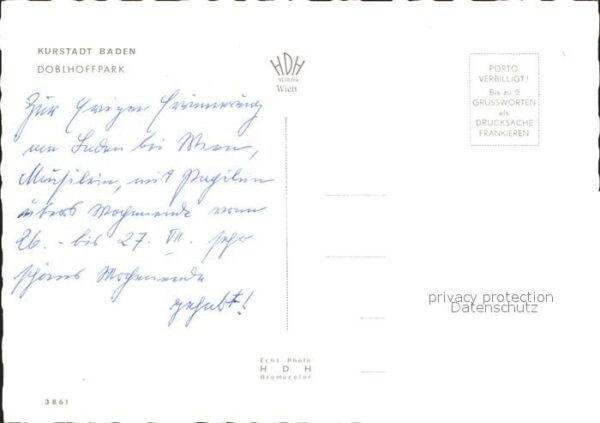 KURSTADT BADEN
DOBLHOFFPARK
HDH
VERLAG
Wien
PORTO
VERBILLIGT!
Bis zu 5
GRUSSWORTEN
als
DRUCKSACHE
FRANKIEREN
Zur Erinnerung
von Baden bei Wien,
mit
übers Wochenende vom
26. - bis 27. VII. sehr
schönes Wochenende
gehabt!
privacy protection
Datenschutz
Echt Photo
HDH
Bromecolor
3861